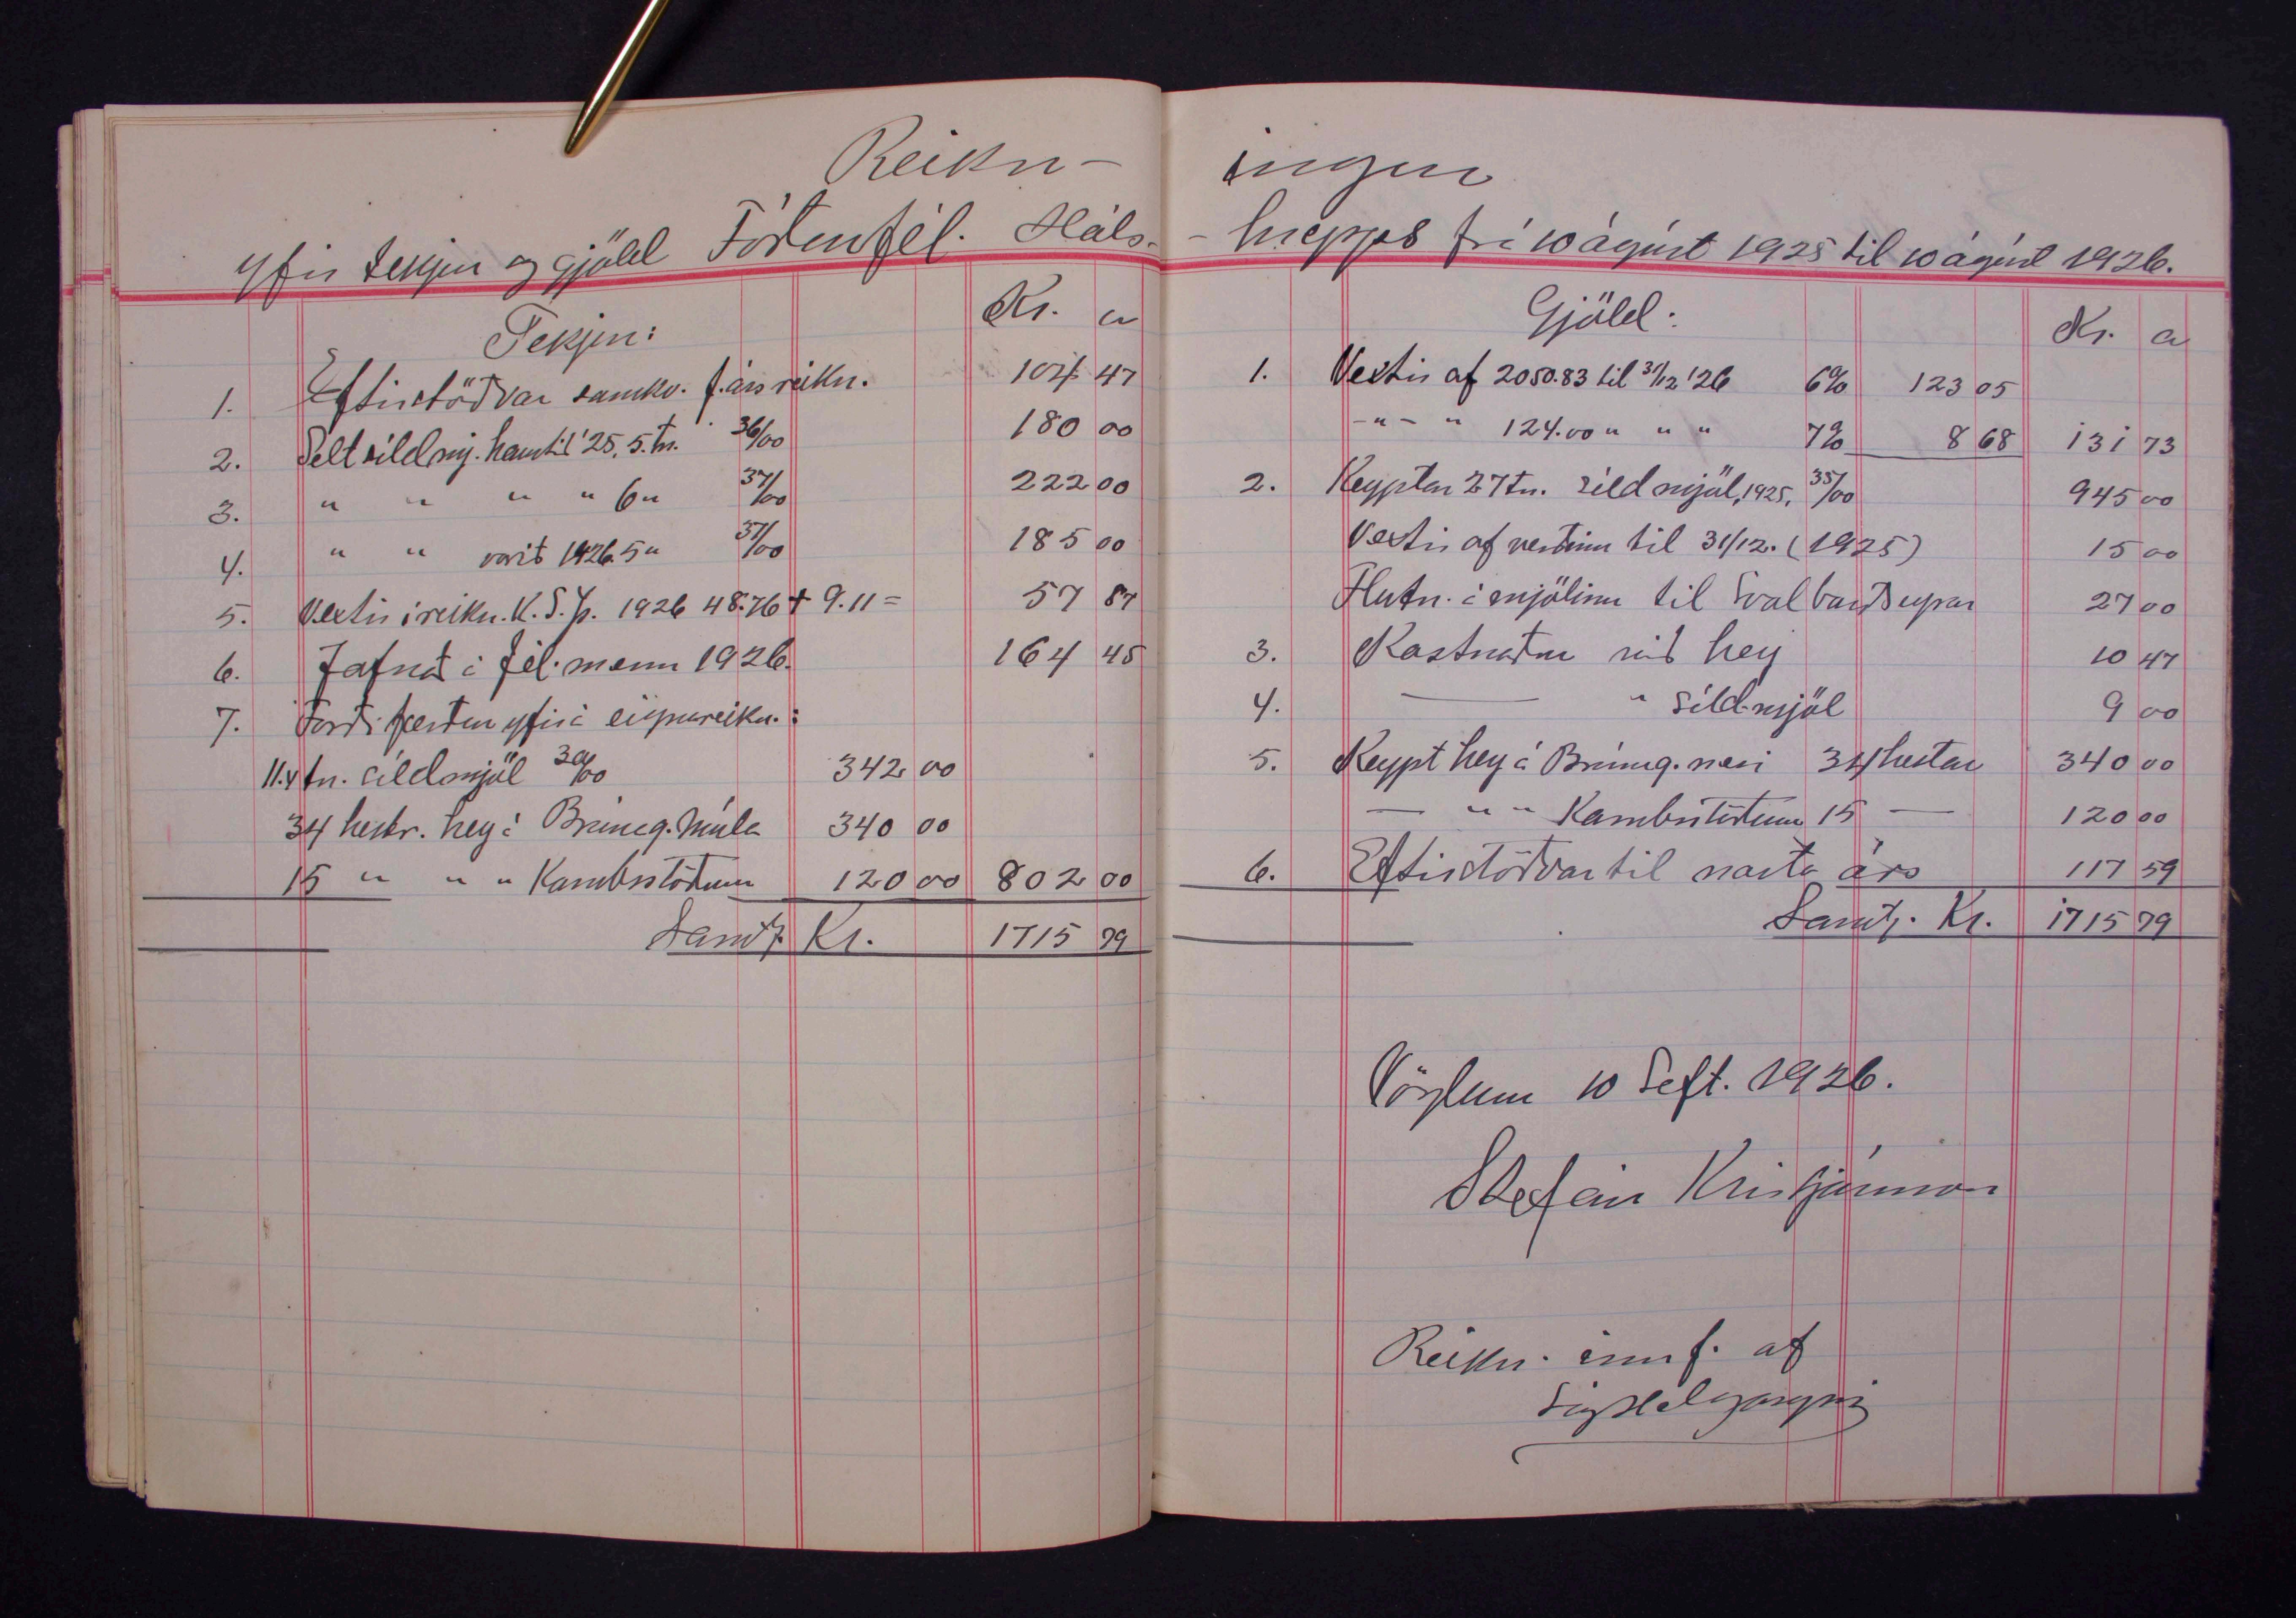 Reikn-
yfir tekjur og gjöld Fóðurfél. Háls-
Tekjur: Kr. a
1. Eftirstöðvar samkv. f. árs reikn. 104 47
2. Selt síldmj. haustið '25, 5. tn. 36/00 180 00
3. " " " " 6 " 37/00 222 00
4. " " vorið 1926 5 " 37/00 185 00
5. Vextir í reikn. K.S.Þ. 1926 48.76 + 9.11 = 57 87
6. Jafnað á fél. menn 1926. 164 45
7. Forði færður yfir á eignareikn.:
11.4 tn. síldmjöl 30/00 342 00
34 hestr. hey á Brúnag. Múla 340 00
15 " " " Kambsstöðum 120 00 802 00
Samt. Kr. 1715 79
ingur
-hrepps frá 10 ágúst 1925 til 10 ágúst 1926.
Gjöld: Kr. a
1. Vextir af 2050.83 til 31/12 '26 6% 123 05
-"- " 124.00 " " " 7% 8 68 131 73
2. Keyptar 27 tn. síldmjöl, 1925, 35/00 945 00
Vextir af verðinu til 31/12. (1925) 15 00
Flutn. á mjölinu til Svalbarðseyrar 27 00
3. Kostnaður við hey 10 47
4. — " síldmjöl 9 00
5. Keypt hey á Brúnag. 34 hestar 340 00
— " " Kambsstöðum 15 — 120 00
6. Eftirstöðvar til næsta árs 117 59
Samt. Kr. 1715 79
Vöglum 10 Sept. 1926.
Stefán Kristjánsson
Reikn. innf. af